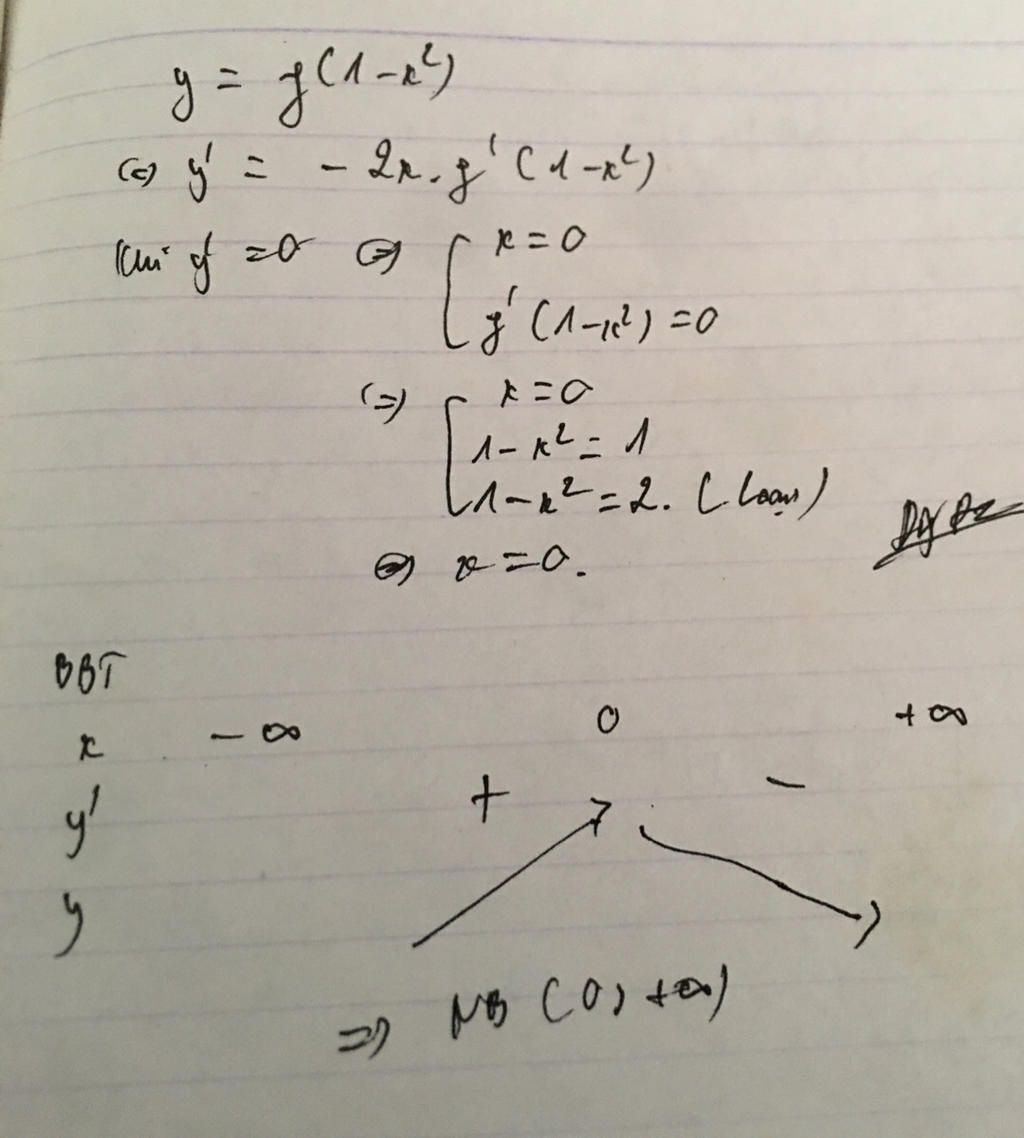 y = f(1-x²)
(=) y' = -2x. f'(1-x²)
Khi y' = 0 (=) [ x = 0
f'(1-x²) = 0
(=) [ x = 0
1-x² = 1
1-x² = 2. (Loại)
(=) x = 0.
BBT
x -∞ 0 +∞
y' + -
y
=> NB (0; +∞)